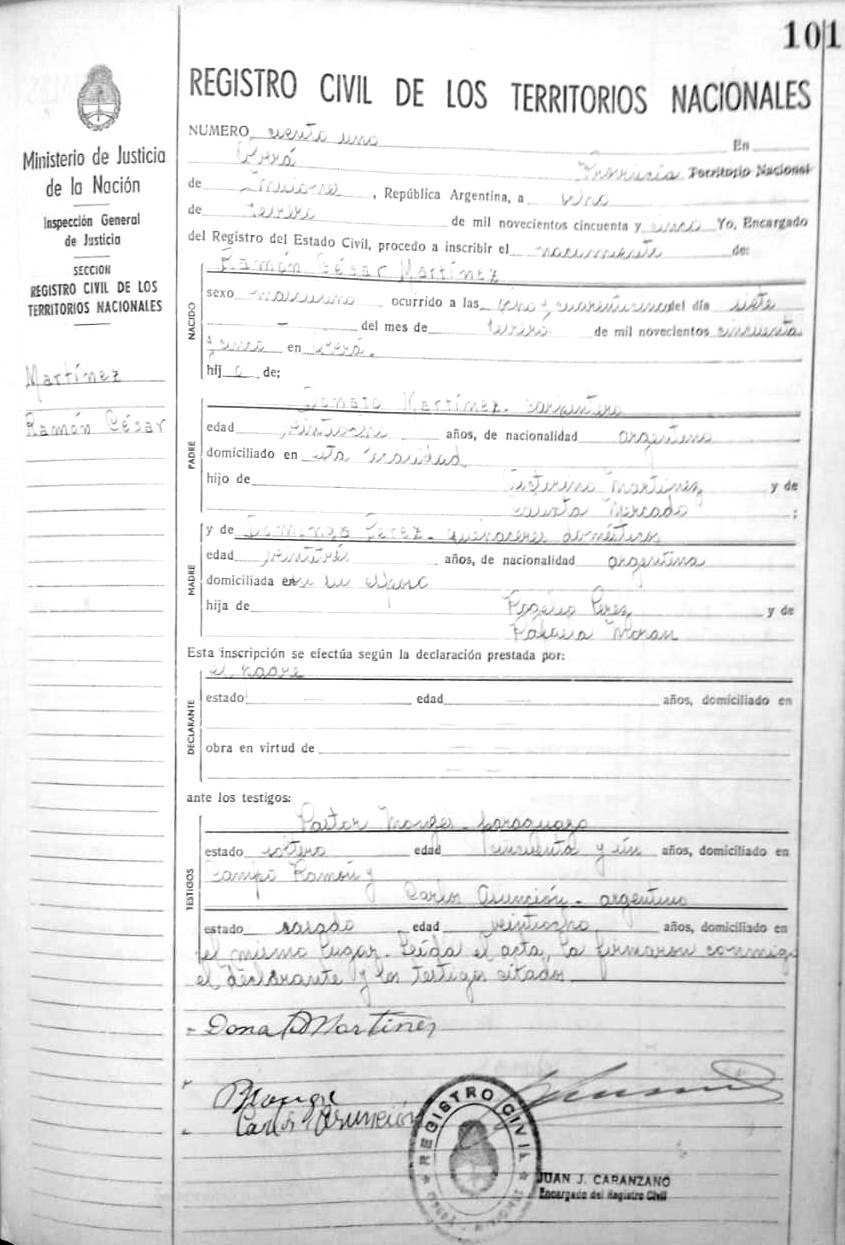 101
Ministerio de Justicia
de la Nación
Inspección General
de Justicia
SECCION
REGISTRO CIVIL DE LOS
TERRITORIOS NACIONALES
Martínez
Ramón César
REGISTRO CIVIL DE LOS TERRITORIOS NACIONALES
NUMERO ciento uno En
Oberá Provincia Territorio Nacional
de Misiones, República Argentina, a ocho
de febrero de mil novecientos cincuenta y cinco Yo, Encargado
del Registro del Estado Civil, procedo a inscribir el nacimiento de:
NACIDO
Ramón César Martínez
sexo masculino ocurrido a las del día siete
del mes de febrero de mil novecientos cincuenta
y cinco en Oberá.
hijo de;
PADRE
Donato Martínez. carpintero
edad veintiocho años, de nacionalidad argentino
domiciliado en esta localidad
hijo de Martínez y de
Mercado ;
MADRE
y de Dominga Perez. quehaceres domésticos
edad veintitrés años, de nacionalidad argentina
domiciliada en su esposo
hija de Rogelio Perez y de
Rafaela Moran
Esta inscripción se efectúa según la declaración prestada por:
DECLARANTE
el padre
estado edad años, domiciliado en
obra en virtud de
ante los testigos:
TESTIGOS
Pastor Monges. paraguayo
estado soltero edad cincuenta y un años, domiciliado en
Campo Ramón y
Carlos Asunción. argentino
estado casado edad veintiocho años, domiciliado en
el mismo lugar. Leída el acta, la firmaron conmigo
el declarante y los testigos citados
Donato Martinez
Monge
Carlos Asunción
REGISTRO CIVIL
JUAN J. CARANZANO
Encargado del Registro Civil